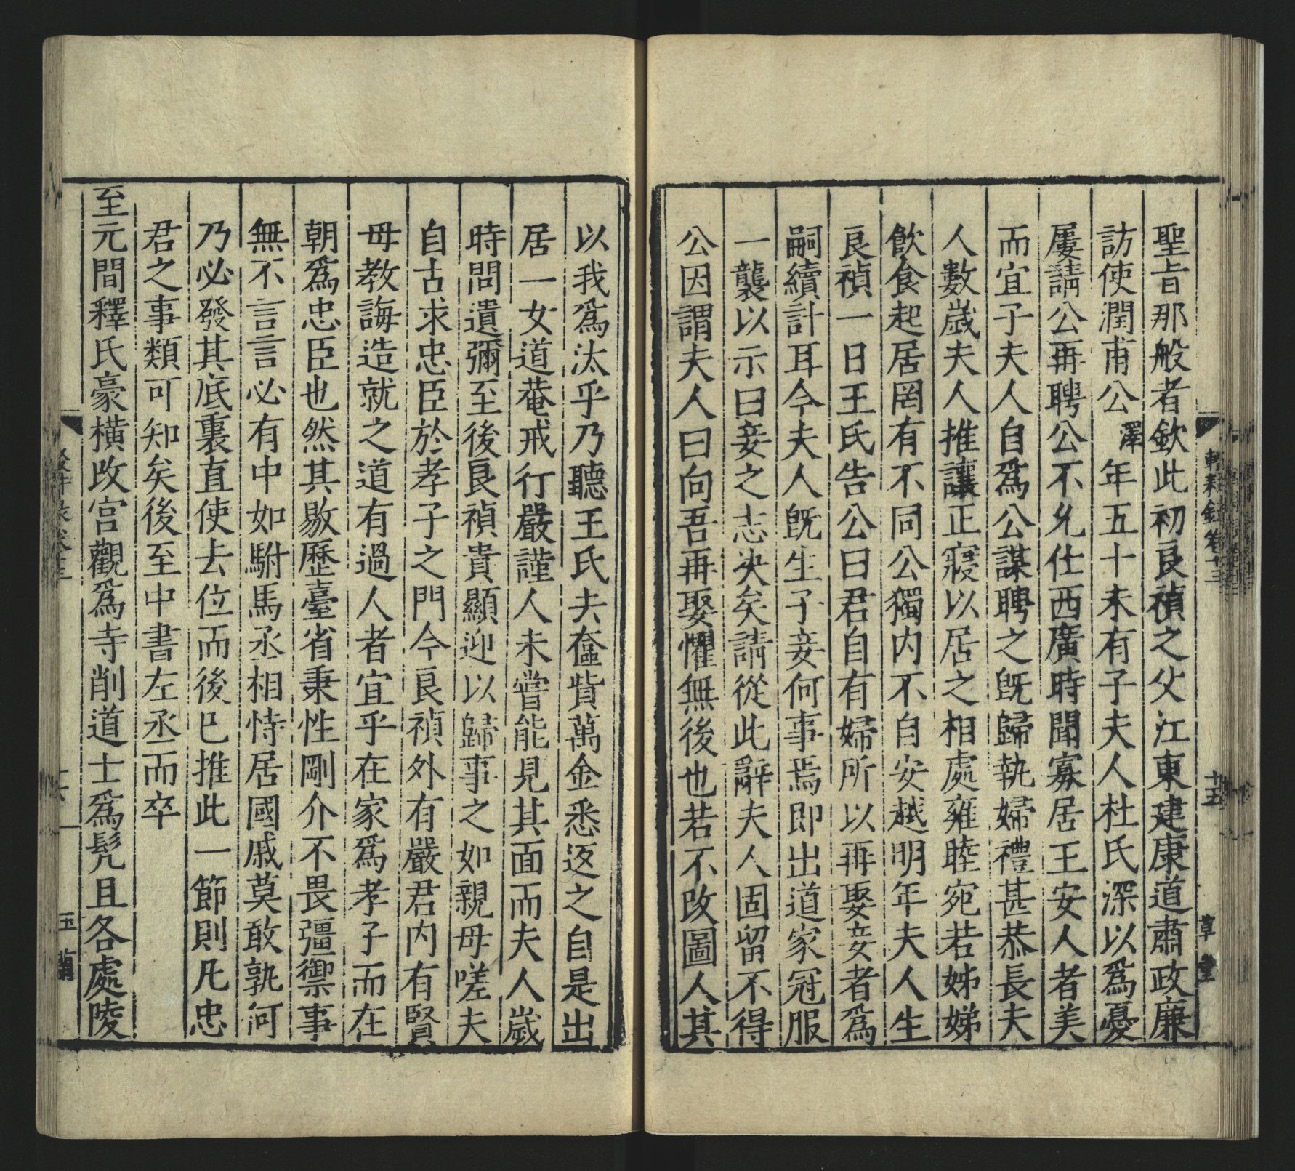 聖旨那般者欽此初良禎之父江東建康道肅政廉
訪使潤甫公澤年五十未有子夫人杜氏深以爲憂
屢請公再聘公不允仕西廣時聞寡居王安人者美
而宜子夫人自爲公謀聘之旣歸執婦禮甚恭長夫
人數歲夫人推讓正寢以居之相處雍睦宛若姊娣
飲食起居罔有不同公獨內不自安越明年夫人生
良禎一日王氏告公曰君自有婦所以再娶妾者爲
嗣續計耳今夫人旣生子妾何事焉即出道家冠服
一襲以示曰妾之志決矣請從此辭夫人固留不得
公因謂夫人曰向吾再娶懼無後也若不改圖人其
以我爲汰乎乃聽王氏去奩貲萬金悉返之自是出
居一女道菴戒行嚴謹人未嘗能見其面而夫人歲
時問遺彌至後良禎貴顯迎以歸事之如親母嗟夫
自古求忠臣於孝子之門今良禎外有嚴君內有賢
母教誨造就之道有過人者宜乎在家爲孝子而在
朝爲忠臣也然其敭歷臺省秉性剛介不畏彊禦事
無不言言必有中如駙馬丞相恃居國戚莫敢孰何
乃必發其底裏直使去位而後已推此一節則凡忠
君之事類可知矣後至中書左丞而卒
至元間釋氏豪橫改宮觀爲寺削道士爲髡且各處陵
十五
草堂
玉蘭